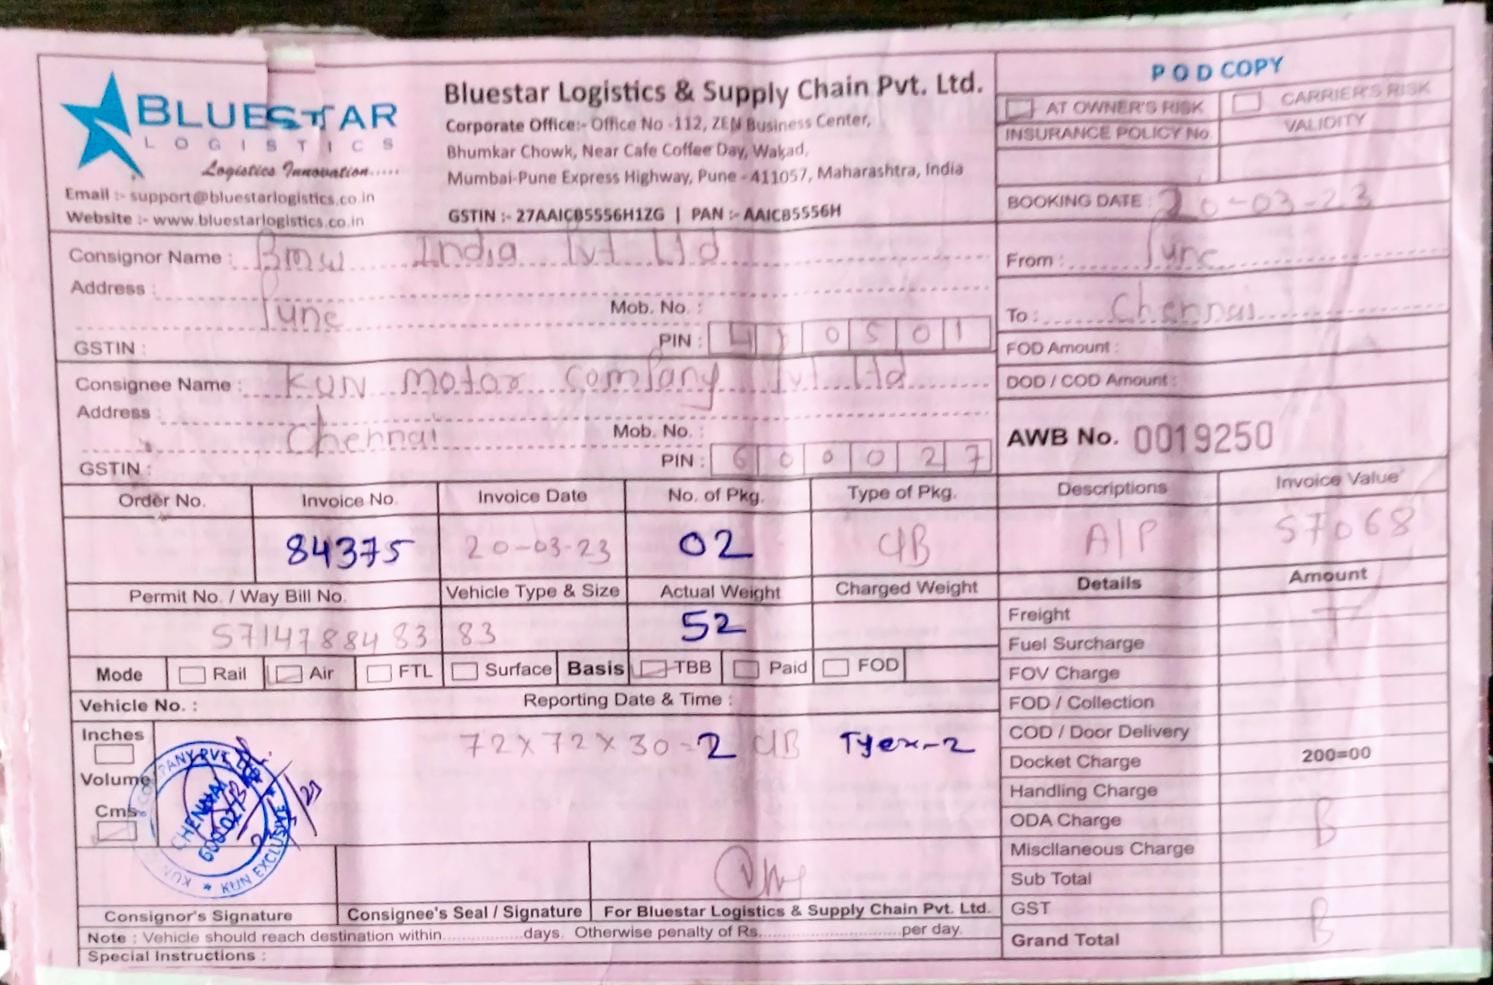 BLUESTAR
LOGISTICS
Logistics Innovation.....
Email :- support@bluestarlogistics.co.in
Website :- www.bluestarlogistics.co.in
Bluestar Logistics & Supply Chain Pvt. Ltd.
Corporate Office:- Office No -112, ZEN Business Center,
Bhumkar Chowk, Near Cafe Coffee Day, Wakad,
Mumbai-Pune Express Highway, Pune - 411057, Maharashtra, India
GSTIN :- 27AAICB5556H1ZG | PAN :- AAICB5556H
POD COPY
AT OWNER'S RISK CARRIER'S RISK
INSURANCE POLICY No. VALIDITY
BOOKING DATE : 20-03-23
From : Pune
To : Chennai
FOD Amount :
DOD / COD Amount :
AWB No. 0019250
Consignor Name : BMW India Pvt Ltd
Address :
Pune Mob. No. :
GSTIN : PIN : 410501
Consignee Name : KUN Motor Company Pvt Ltd
Address :
Chennai Mob. No. :
GSTIN : PIN : 600027
Order No. Invoice No. Invoice Date No. of Pkg. Type of Pkg. Descriptions Invoice Value
84375 20-03-23 02 CIB A/P 57068
Permit No. / Way Bill No. Vehicle Type & Size Actual Weight Charged Weight
571478848383 52
Mode Rail Air FTL Surface Basis TBB Paid FOD
Vehicle No. : Reporting Date & Time :
Inches
Volume
Cms.
72X72X30-2 CIB Tyer-2
CHENNAI
600027
KUN EXCLUSIVE
Details Amount
Freight T
Fuel Surcharge
FOV Charge
FOD / Collection
COD / Door Delivery
Docket Charge 200=00
Handling Charge
ODA Charge B
Miscllaneous Charge
Sub Total
GST
Grand Total B
Consignor's Signature Consignee's Seal / Signature For Bluestar Logistics & Supply Chain Pvt. Ltd.
Note : Vehicle should reach destination within..................days. Otherwise penalty of Rs..............................per day.
Special Instructions :